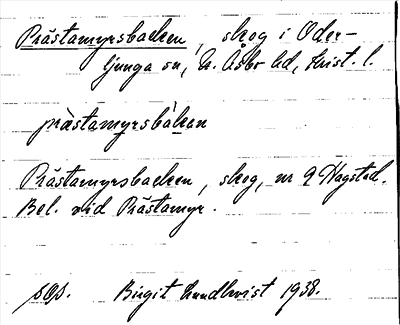 Prästamyrsbacken, skog i Oder-
ljunga sn, N. Åsbo hd, Krist. l.
prästamyrsbákan
Prästamyrsbacken, skog, nr 9 Hagstad.
Bel. vid Prästamyr.
sOs. Birgit Lundkvist 1938.